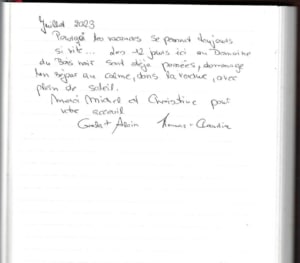 Juillet 2023
Pourquoi les vacances se passent toujours
si vite... Les 12 jours ici au Domaine
du Bois noir sont déjà passées, dommage
Un séjour au calme, dans la verdure, avec
plein de soleil.
Merci Michel et Christine pour
votre accueil
Alain Thomas - Claudia